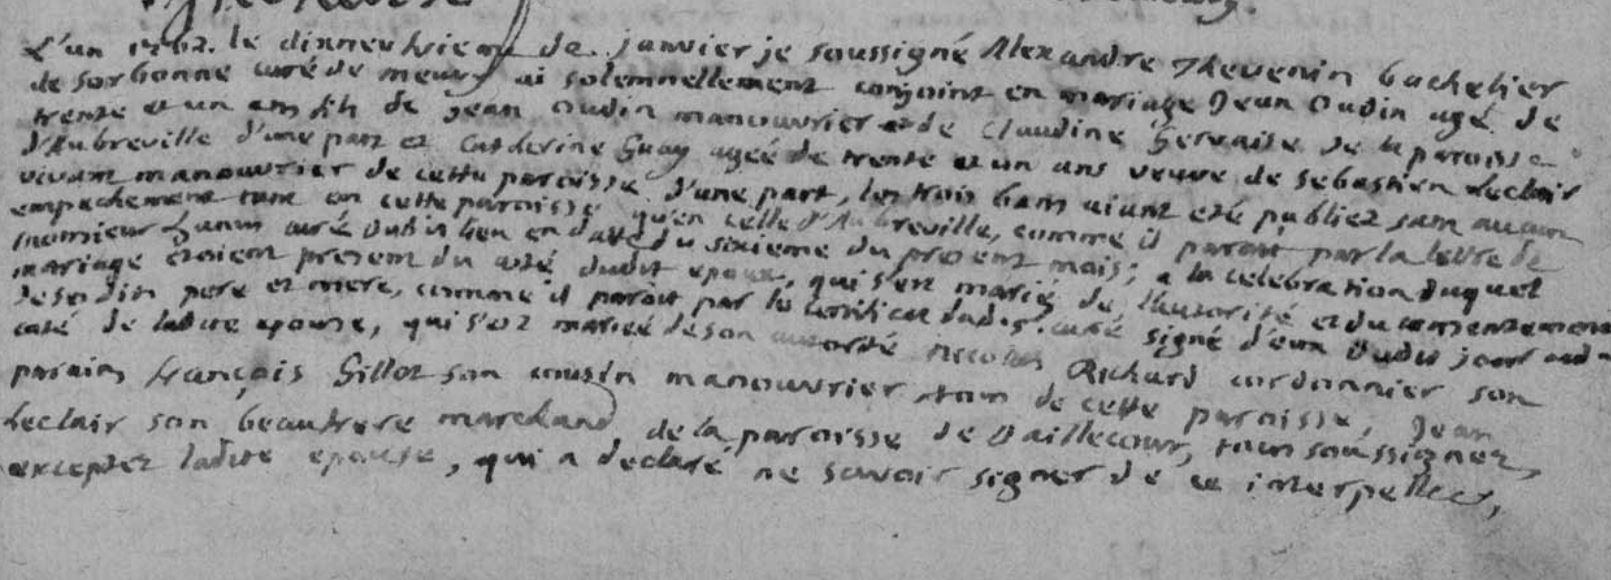 L'an 1762. le dixneuvieme de janvier je soussigné Alexandre Thevenin bachelier
de sorbonne curé de meuvy ai solemnellement conjoint en mariage Jean Oudin agé de
trente et un ans fils de Jean Oudin manouvrier et de Claudine Gervaise de la paroisse
d'Aubreville d'une part et Catherine Guay ageé de trente et un ans veuve de Sebastien Leclair
vivant manouvrier de cette paroisse d'une part, les trois bans aiant eté publiez sans aucun
empechement tant en cette paroisse qu'en celle d'Aubreville, comme il paroit par la lettre de
monsieur curé dudit lieu en datte du sixieme du present mois; a la celebration duquel
mariage étoient presens du coté dudit epoux, qui s'est marié de l'autorité et du consentement
de sesdits pere et mere, comme il paroit par le certificat dudit s. curé signé d'eux dudit jour
coté de ladite epouse, qui s'est mariée de son autorité Nicolas Richard cordonnier son
parain, françois Gillot son cousin manouvrier tous de cette paroisse, Jean
Leclair son beaufrere marchand de la paroisse de Daillecour, tous soussignez,
exceptez ladite epouse, qui a declaré ne savoir signer de ce interpellee,